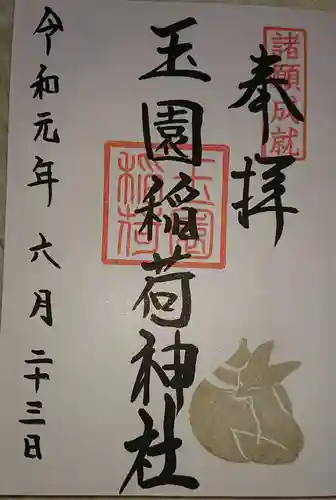 諸願成就
奉拝
玉園稲荷神社
玉園
稲荷
令和元年六月二十三日